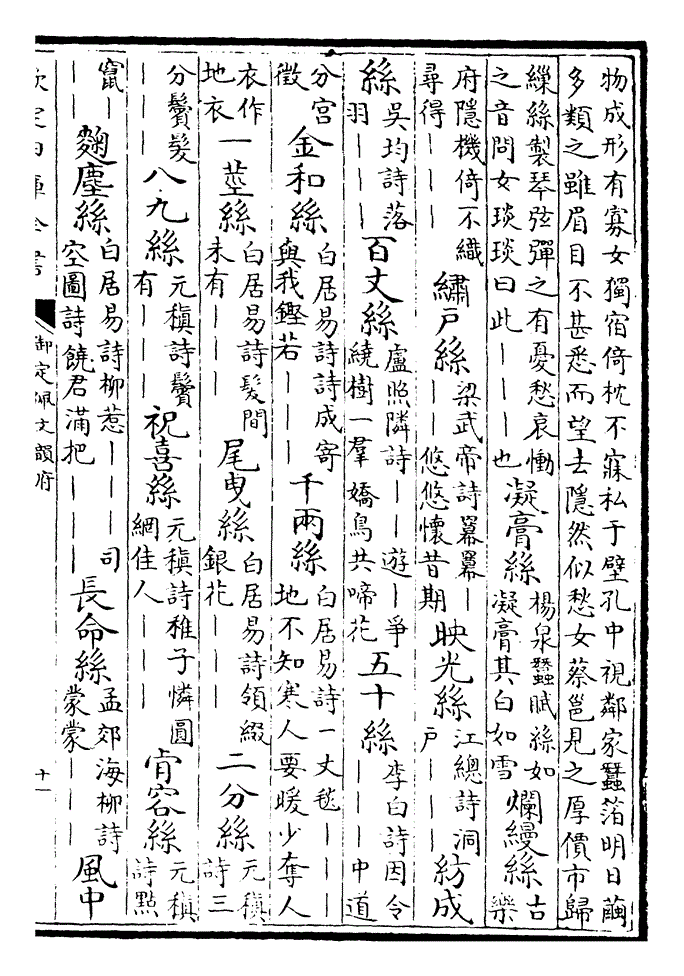 物成形有寡女獨宿倚枕不寐私于壁孔中視鄰家蠶箔明日繭
多類之雖眉目不甚悉而望去隱然似愁女蔡邕見之厚價市歸
繅絲製琴弦彈之有憂愁哀慟之音問女琰琰曰此｜｜｜也凝膏絲楊泉蠶賦絲如凝膏其白如雪爛縵絲古樂
府隱機倚不織尋得｜｜｜繡戶絲梁武帝詩羃羃｜｜｜悠悠懷昔期映光絲江總詩洞戶｜｜｜紡成
絲吳均詩落羽｜｜｜百丈絲盧照隣詩｜｜遊｜爭繞樹一羣嬌鳥共啼花五十絲李白詩因令｜｜｜中道
分宮徵金和絲白居易詩詩成寄與我鏗若｜｜｜千兩絲白居易詩一丈毯｜｜｜地不知寒人要暖少奪人
衣作地衣一莖絲白居易詩髮間未有｜｜｜尾曳絲白居易詩領綴銀花｜｜｜二分絲元稹詩三
分鬢髮｜｜｜八九絲元稹詩鬢有｜｜｜祝喜絲元稹詩稚子憐圓網佳人｜｜｜肯容絲元稹詩點
竄｜｜｜麴塵絲白居易詩柳惹｜｜｜司空圖詩饒君滿把｜｜｜長命絲孟郊海柳詩蒙蒙｜｜｜風中
欽定四庫全書
御定佩文韻府
十一